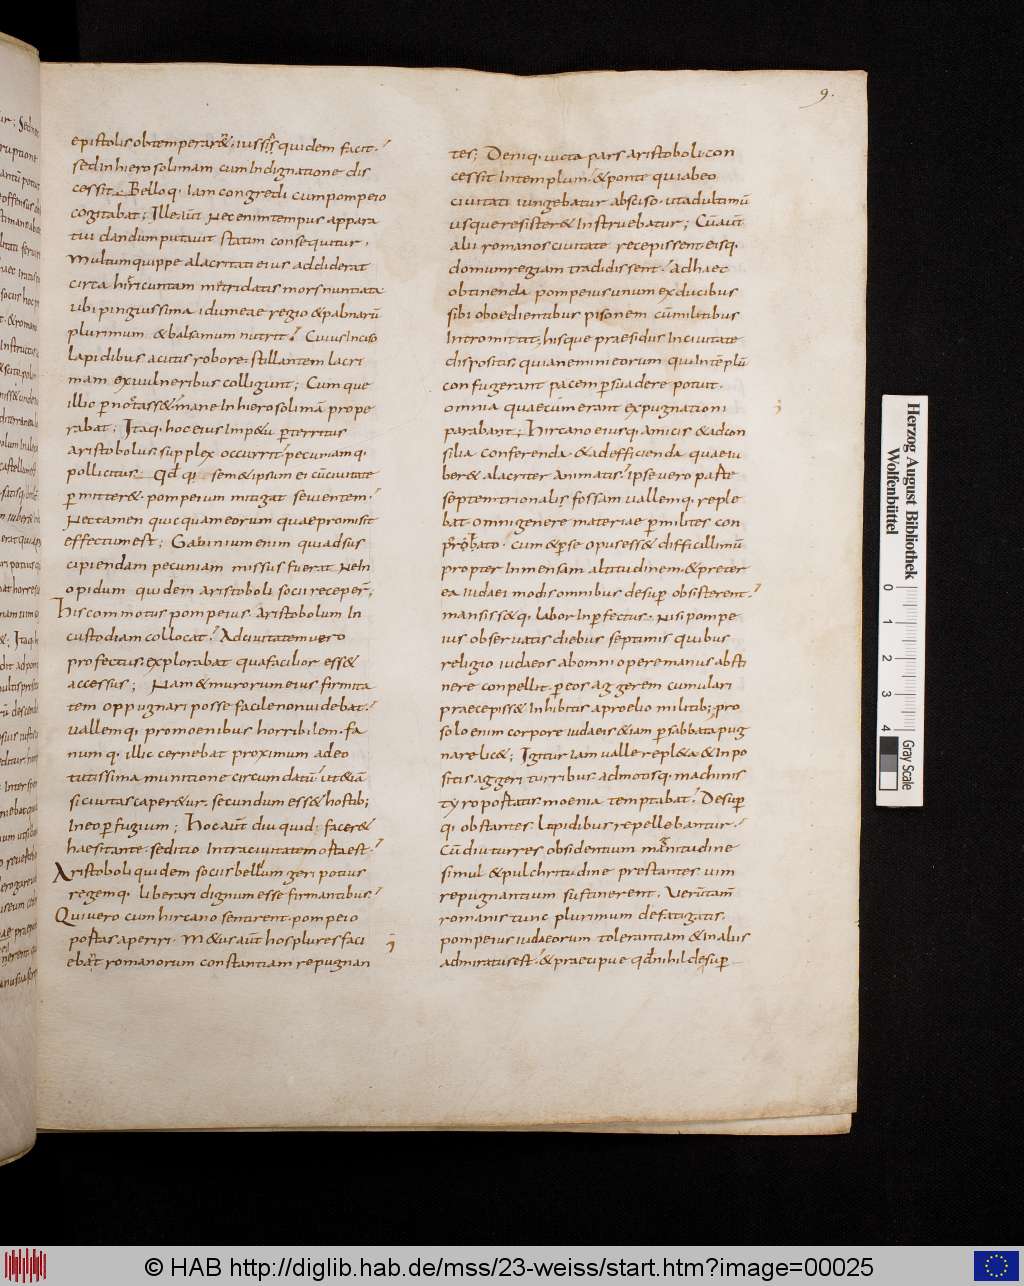 9.
epistolis obtemperar&; iussis quidem facit.
sed in hierosolimam cum indignatione dis
cessit. Belloq; iam congredi cum pompeio
cogitabat; Ille aūt nec enim tempus appara
tui dandum putauit statim consequitur,
Multum quippe alacritati eius addiderat
circa hiericuntam metridatis mors nuntiata
ubi pinguissima idumeae regio & palmarū
plurimum & balsamum nutrit; Cuius inciso
lapidibus acutis robore; stillantem lacri
mam ex uulneribus colligunt; Cumque
illic p noctass& mane in hierosolimā prope
rabat; Itaq; hoc eius imp&u pterritus
aristobolus supplex occurrit; pecuniamq;
pollicitus. Qđ qꝫ sem & ipsum ei cū ciuitate
pmitter&. pompeium mitigat seuientem;
Nec tamen quicquam eorum quae promisit
effectum est; Gabinium enim qui ad sus
cipiendam pecuniam missus fuerat ne in
opidum quidem aristoboli socii receper̄;
His commotus pompeius. Aristobolum in
custodiam collocat; Ad ciuitatem uero
profectus, explorabat qua facilior ess&
accessus; Nam & murorum eius firmita
tem oppugnari posse facile non uidebat;
uallemq; pro moenibus horribilem. fa
numq; illic cernebat proximum adeo
tutissima munitione circumdatū; ut & iā
si ciuitas caper&ur. secundum ess& hostib;
in eo pfugium; Hoc aūt diu quid facer&
haesitante. seditio intra ciuitatem ofta est;
Aristoboli quidem sociis bellum geri potius
regemq; liberari dignum esse firmantibus;
Qui uero cum hircano sentirent. pompeio
portas aperiri. M&us aūt hos plures faci
ebat romanorum constantiam repugnan
tes; Deniq; uicta pars aristoboli con
cessit in templum. & ponte qui ab eo
ciuitati iungebatur absciso. ut ad ultimū
usque resister& instruebatur; Cū aūt
alii romanos ciuitate recepissent eisq;
domum regiam tradidissent; Ad haec
obtinenda pompeius unum ex ducibus
sibi oboedientibus pisonem cū militibus
intromittit, hisque praesidus in ciuitate
dispositis, quia nemini eorum qui in tēplū
confugerant pacem psuadere potuit.
omnia quaecūm erant expugnationi
parabant; Hircano eiusq; amicis & ad con
silia conferenda & ad efficienda quae iu
ber& alacriter animatis; ipse uero parte
septemtrionalis fossam uallemq; reple
bat omni genere materiae p milites con
. cum & pse opus ess& difficillimū
propter inmensam altitudinem. & preter
ea iudaei modis omnibus desup obsisterent;
mansiss&q; labor inpfectus, nisi pompe
ius obseruatis diebus septimis quibus
religio iudaeos ab omni opere manus absti
nere conpellit. p eos aggerem cumulari
praecepiss& inhibitis a proelio militib; pro
solo enim corpore iudaeis & iam p sabbata pug
nare lic&; Igitur iam ualle repl&a & inpo
sitis aggeri turribus admotisq; machinis
tyro portatis moenia temptabat; Desup
q; obstantes lapidibus repellebantur;
Cū diu turres obsidentium magnitudine
simul & pulchritudine prestantes uim
repugnantium sustinerent. Uerūtam̄
romanis tunc plurimum defatigatis.
pompeius iudaeorum tolerantiam & in aliis
admiratus est; & praecipue qđ nihil desup
Herzog August Bibliothek
Wolfenbüttel
0 1 2 3 4
Gray Scale
© HAB http://diglib.hab.de/mss/23-weiss/start.htm?image=00025